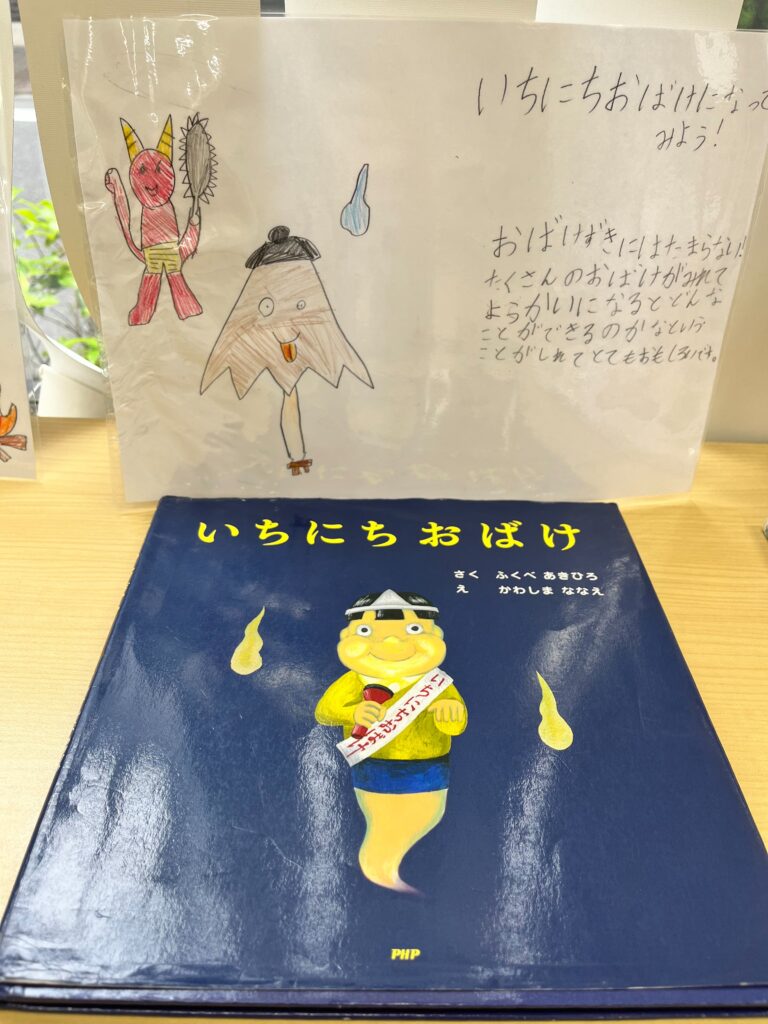 いちにちおばけになって
みよう!
おばけずきにはたまらない!
たくさんのおばけがみれて
ようかいになるとどんな
ことができるのかなという
ことがしれてとてもおもしろいです。
いちにちおばけ
さく ふくべ あきひろ
え かわしま ななえ
いちにちおばけ
PHP